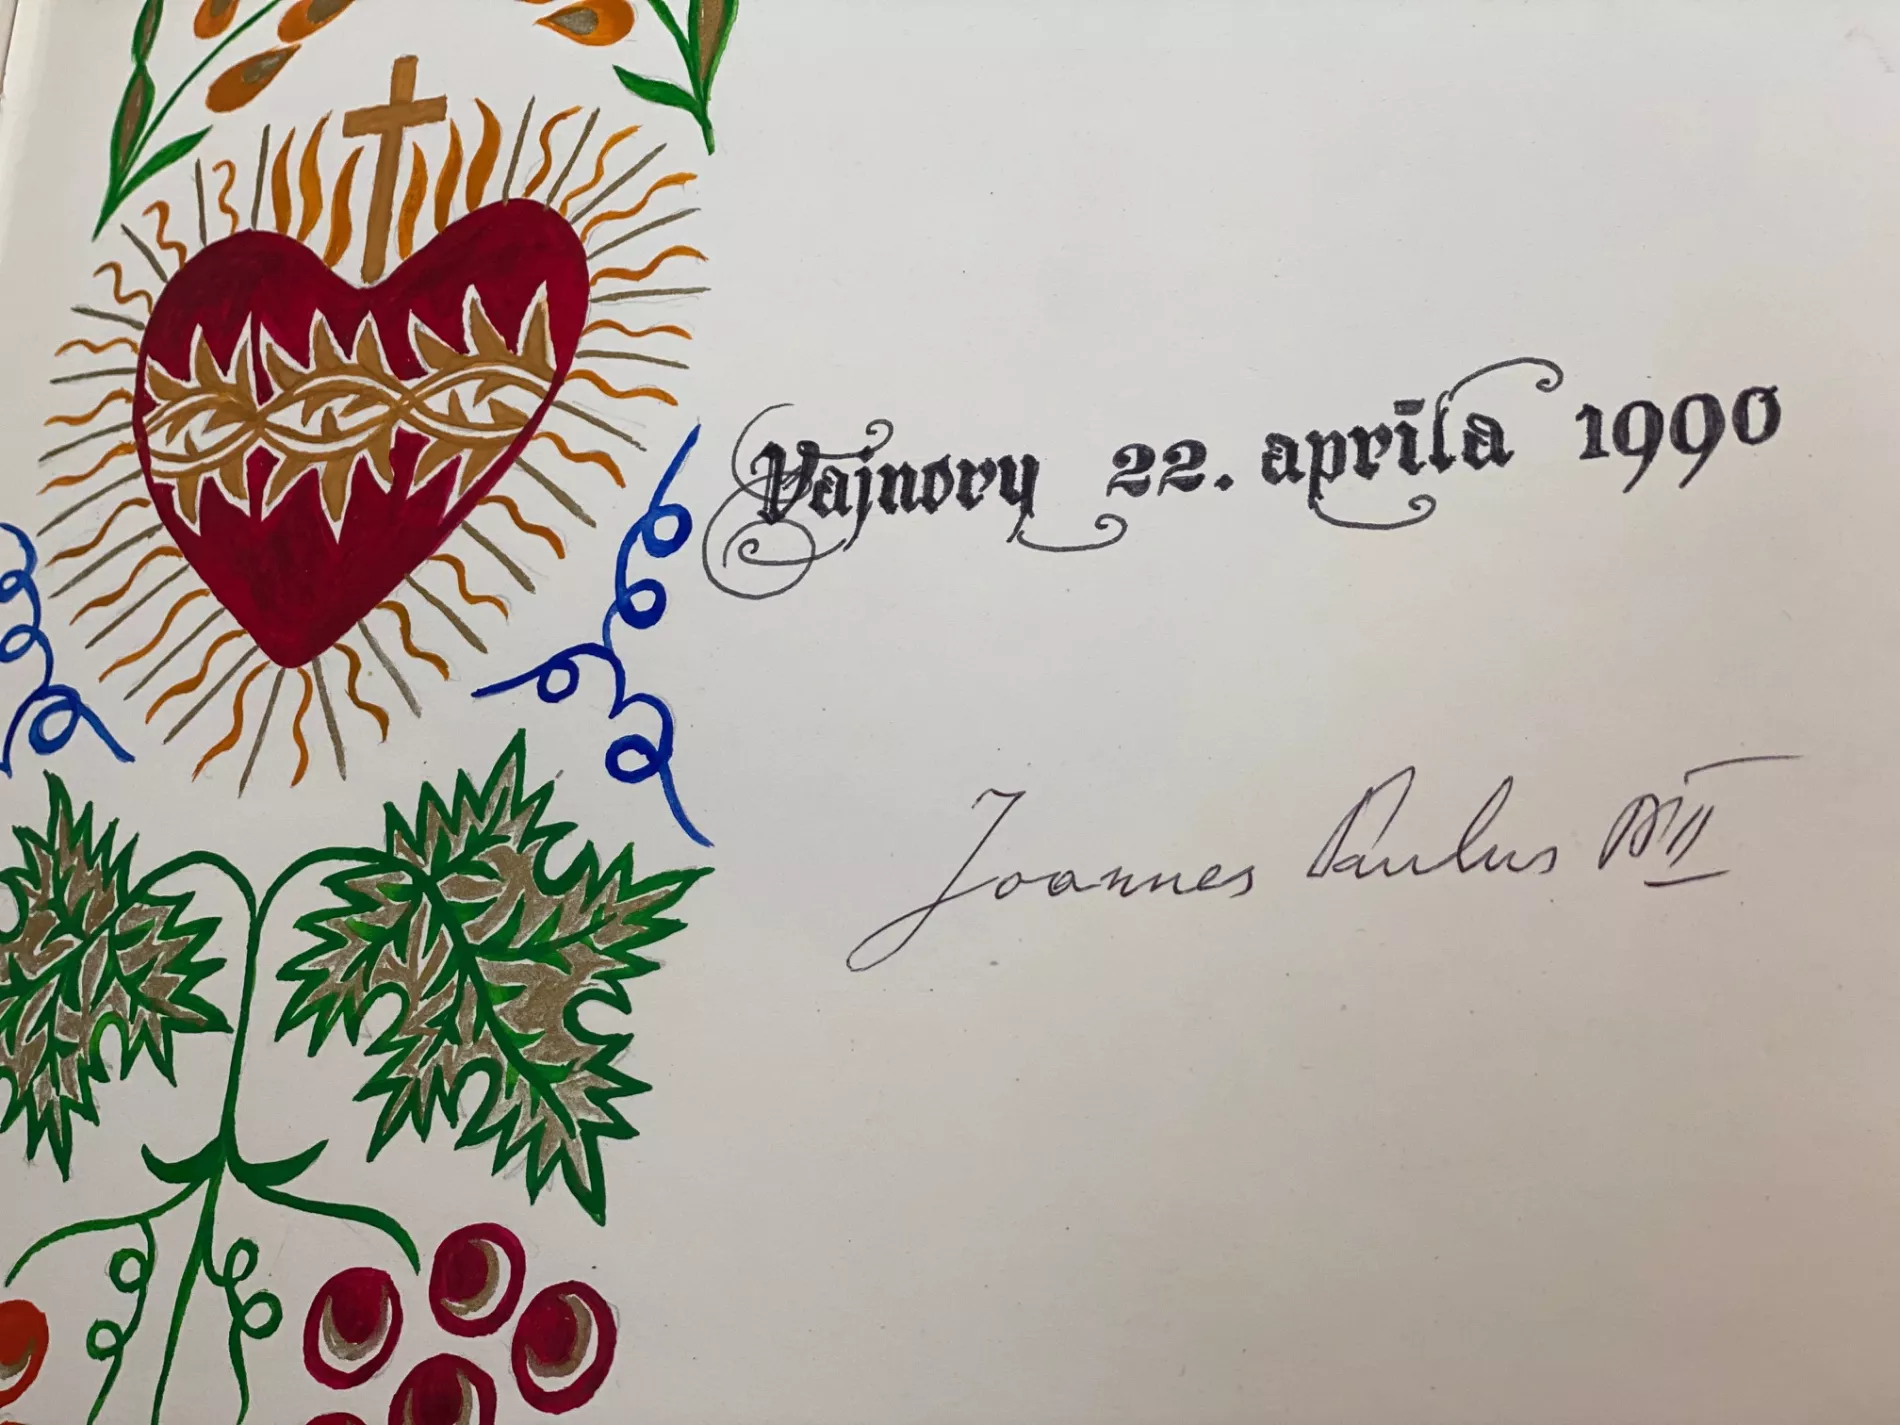 Vajnory 22. apríla 1990
Joannes Paulus PP II